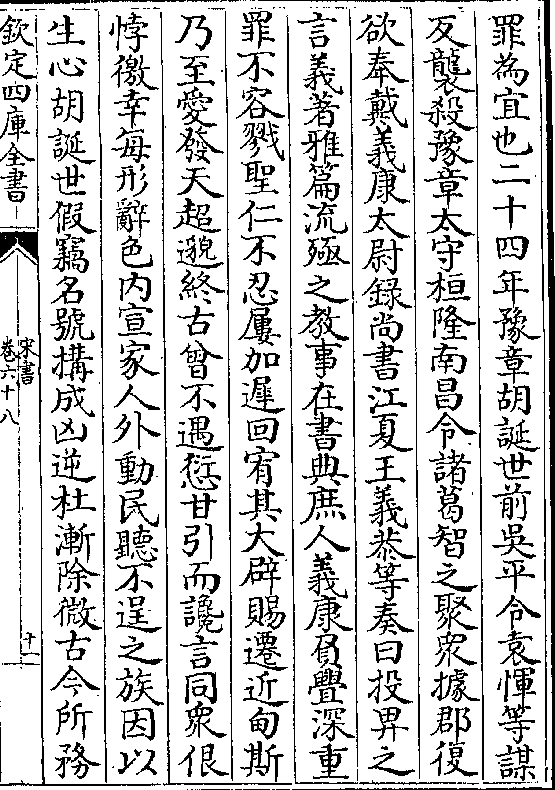 罪為宜也二十四年豫章胡誕世前吳平令袁惲等謀
反襲殺豫章太守桓隆南昌令諸葛智之聚衆據郡復
欲奉戴義康太尉錄尚書江夏王義恭等奏曰投畀之
言義著雅篇流殛之教事在書典庶人義康負舋深重
罪不容戮聖仁不忍屢加遲回宥其大辟賜遷近甸斯
乃至愛發天超邈終古曾不遇愆甘引而讒言同衆佷
悖徼幸每形辭色内宣家人外動民聽不逞之族因以
生心胡誕世假竊名號搆成凶逆杜漸除微古今所務
欽定四庫全書
宋書
卷六十八
十一